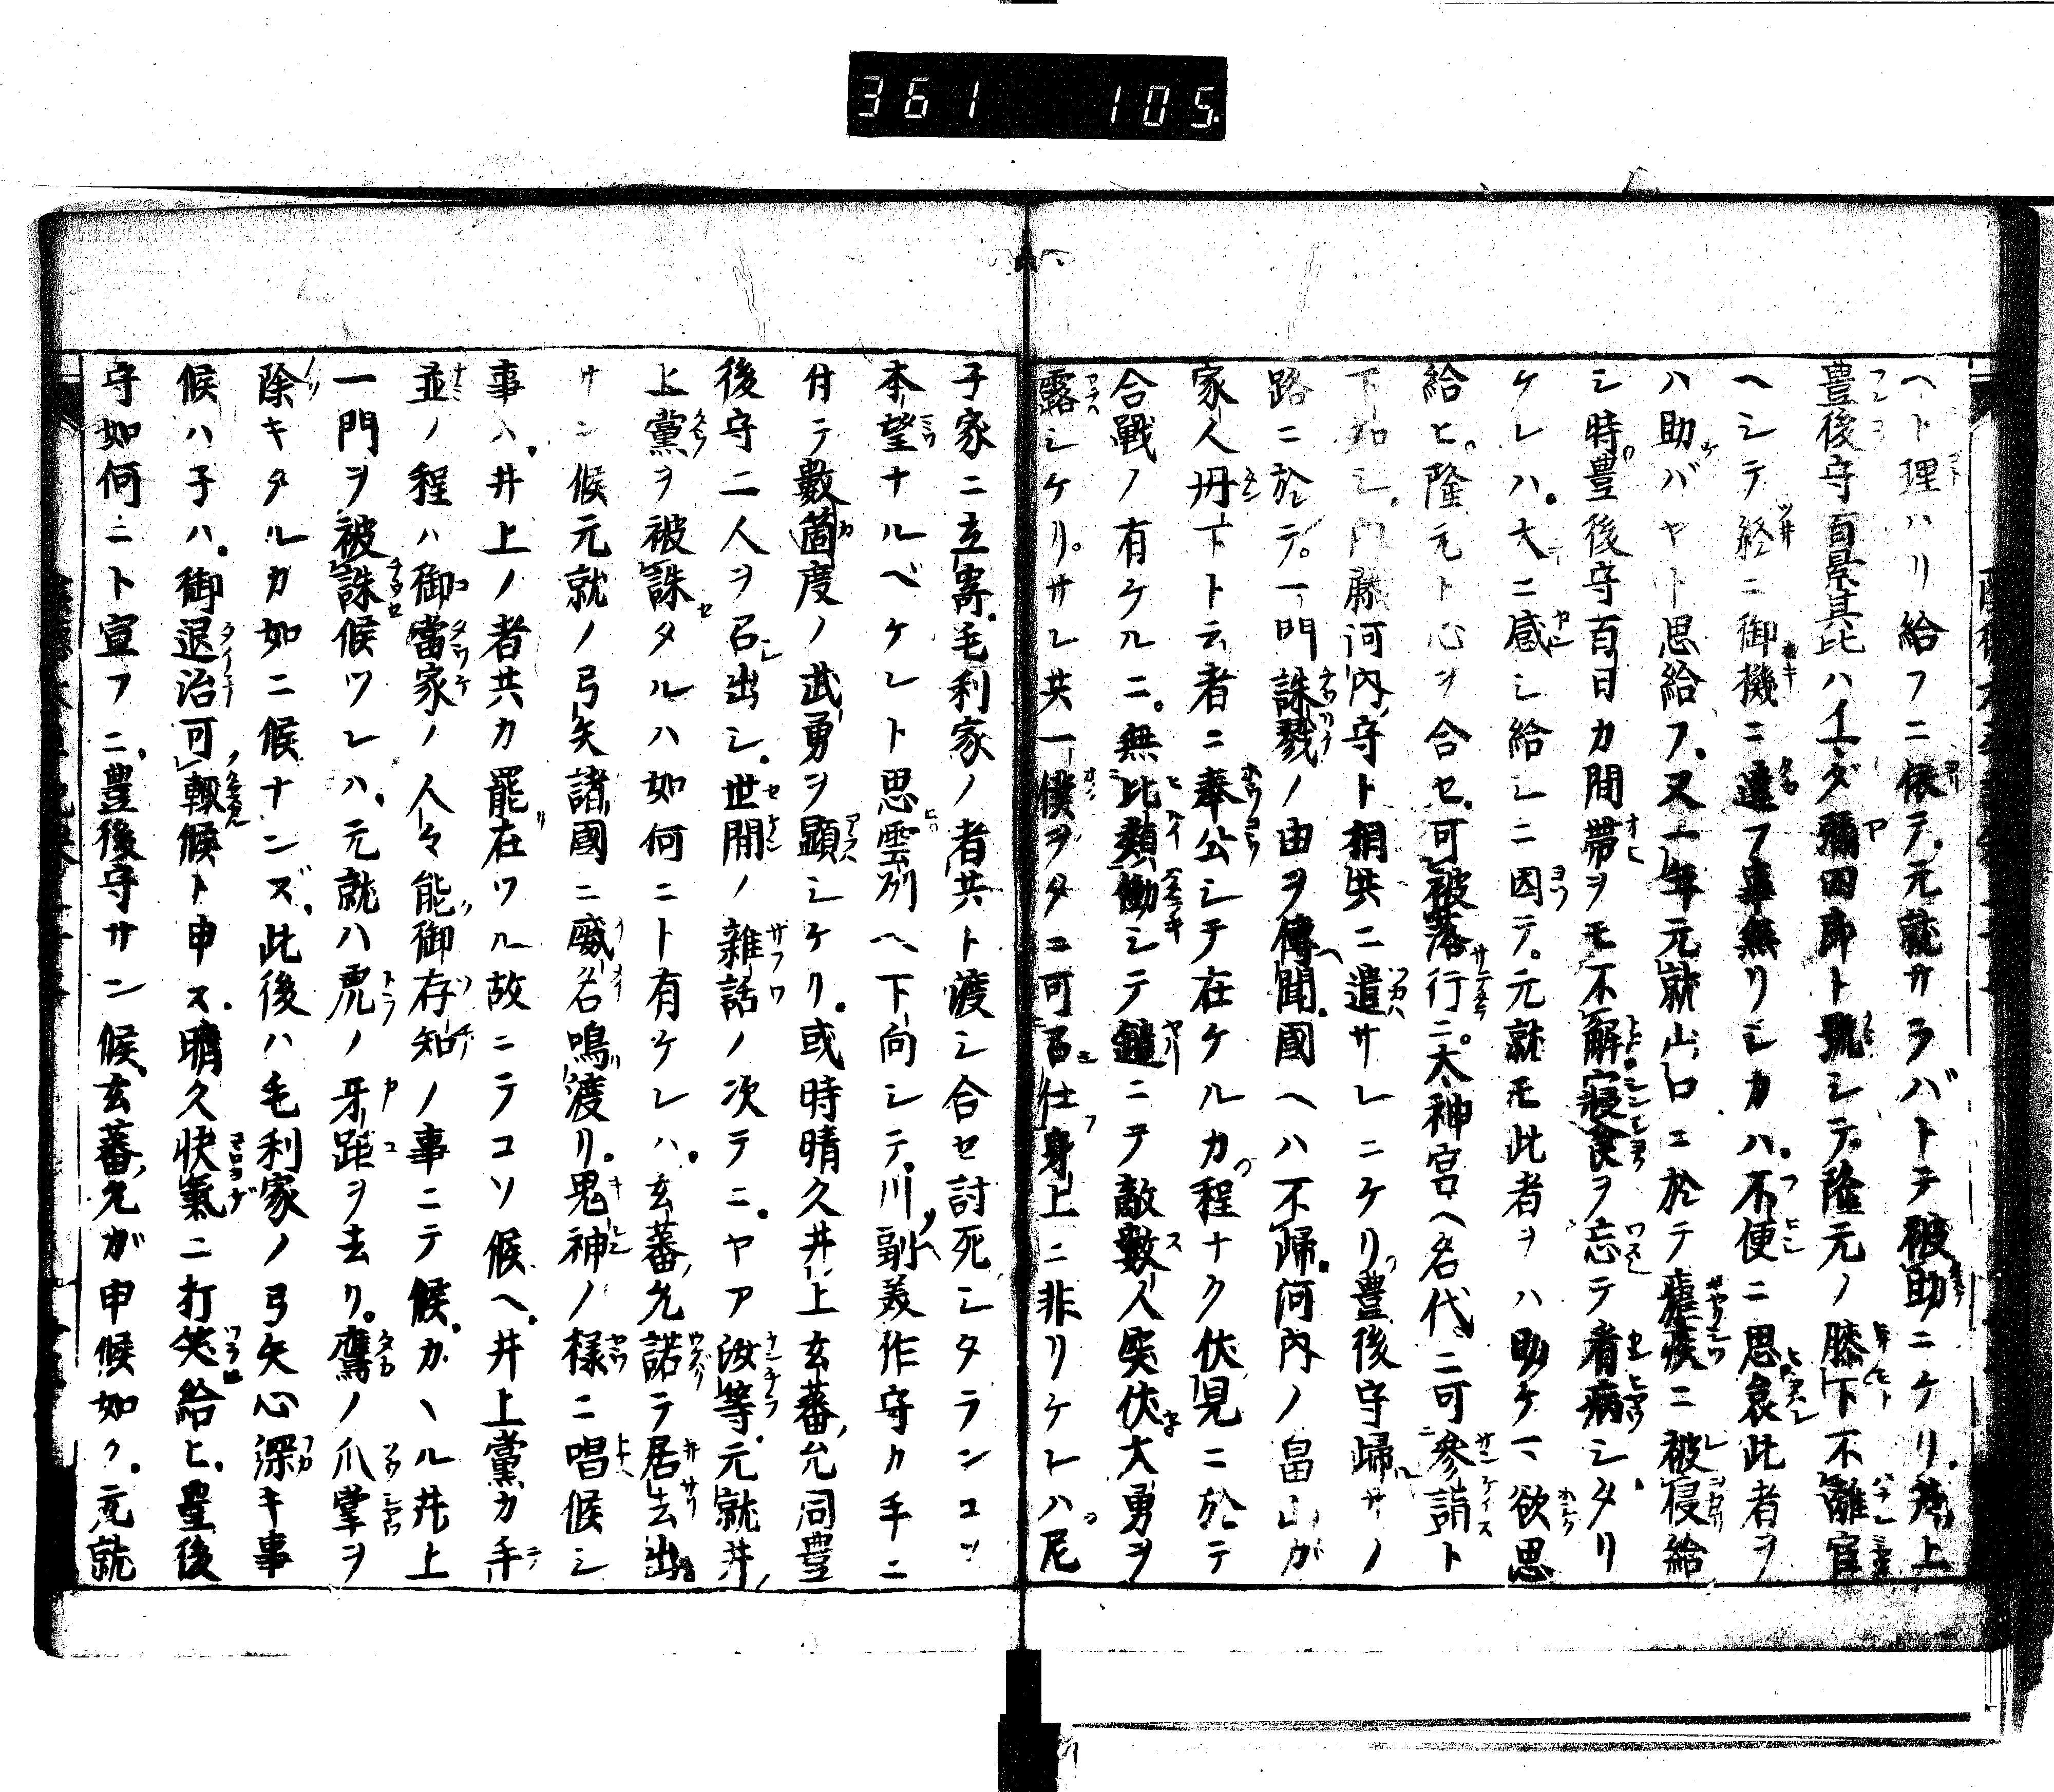 361 105
ヘト理ハリ給フニ依テ、元就カラバトテ被助ニケリ。井上
豊後守百景其比ハイマダ彌四郎ト號シテ、隆元ノ膝下不離宦
ヘシテ終ニ御機ニ違フ事無リシカハ、不便ニ思哀此者ヲ
ハ助バヤト思給フ。又一年元就山口ニ於テ瘧疾ニ被侵給
シ時、豊後守百日カ間帯ヲモ不解寝食ヲ忘テ看病シタリ
ケレハ、大ニ感シ給シニ因テ。元就モ此者ヲハ助ケマ欲思
給ヒ、隆元ト心ヲ合セ、可被落行ニ。太神宮ヘ名代ニ可参詣ト
下知シ、内藤河内守ト相共ニ遣サレニケリ。豊後守歸サノ
路ニ於テ。一門誅戮ノ由ヲ傳聞、國ヘハ不歸、河内ノ畠山ガ
家人丹下ト云者ニ奉公シテ在ケルカ、程ナク伏見ニ於テ
合戰ノ有ケルニ。無比類働シテ鑓ニテ敵數人突伏大勇ヲ
露シケリ。サレ共一僕ヲタニ可召仕身上ニ非リケレハ、尼
子家ニ立寄、毛利家ノ者共ト渡シ合セ討死シタランコソ
本望ナルベケレト思、雲列ヘ下向シテ、川副美作守カ手ニ
付テ數箇度ノ武勇ヲ顕シケリ。或時晴久井上玄蕃允同豊
後守二人ヲ召出シ。世間ノ雑話ノ次テニ。ヤア汝等、元就井
上黨ヲ被誅タルハ如何ニト有ケレハ。玄蕃允諾テ居去出
サン候元就ノ弓矢諸國ニ威名鳴渡リ。鬼神ノ様ニ唱候シ
事ハ、井上ノ者共カ罷在ツル故ニテコソ候ヘ。井上黨カ手
並ノ程ハ御當家ノ人々能御存知ノ事ニテ候。カヽル井上
一門ヲ被誅候ツレハ、元就ハ虎ノ牙距ヲ去リ。鷹ノ爪掌ヲ
除キタルカ如ニ候ナンズ、此後ハ毛利家ノ弓矢心深キ事
候ハ子ハ。御退治可輙候ト申ス。晴久快氣ニ打笑給ヒ、豊後
守如何ニト宣フニ、豊後守サン候、玄蕃允ガ申候如ク、元就